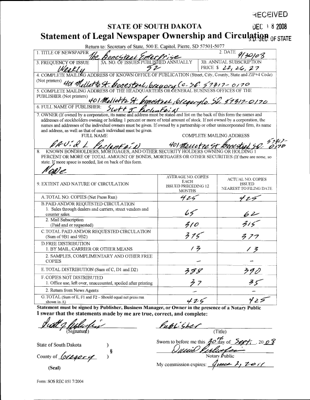 RECEIVED
DEC 15 2008
STATE OF SOUTH DAKOTA
Statement of Legal Newspaper Ownership and Circulation
Return to: Secretary of State, 500 E. Capitol, Pierre, SD 57501-5077
1. TITLE OF NEWSPAPER
2. DATE
The Bonesteel Enterprise
3. FREQUENCY OF ISSUE
3A. NO. OF ISSUES PUBLISHED ANNUALLY
3B. ANNUAL SUBSCRIPTION
Weekly
52
PRICE $ 22, 26, 27
4. COMPLETE MAILING ADDRESS OF KNOWN OFFICE OF PUBLICATION (Street, City, County, State and ZIP+4 Code)
(Not printers)
5. COMPLETE MAILING ADDRESS OF THE HEADQUARTERS OR GENERAL BUSINESS OFFICES OF THE
PUBLISHER (Not printer)
6. FULL NAME OF PUBLISHER
7. OWNER (If owned by a corporation, its name and address must be stated and list on the back of this form the names and
addresses of stockholders owning or holding 1 percent or more of total amount of stock. If not owned by a corporation, the
names and addresses of the individual owners must be given. If owned by a partnership or other unincorporated firm, its name
and address, as well as that of each individual must be given.
FULL NAME
COMPLETE MAILING ADDRESS
8. KNOWN BONDHOLDERS, MORTGAGES, AND OTHER SECURITY HOLDERS OWNING OR HOLDING 1
PERCENT OR MORE OF TOTAL AMOUNT OF BONDS, MORTGAGES OR OTHER SECURITIES (If there are none, so
state. If more space is needed, list on back of this form.
None
9. EXTENT AND NATURE OF CIRCULATION
AVERAGE NO. COPIES
EACH
ISSUED PRECEDING 12
MONTHS
ACTUAL NO. COPIES
ISSUED
NEAREST TO FILING DATE
A. TOTAL NO. COPIES (Net Press Run)
425
425
B. PAID AND/OR REQUESTED CIRCULATION
1. Sales through dealers and carriers, street vendors and
counter sales
65
62
2. Mail Subscription
(Paid and or requested)
310
315
C. TOTAL PAID AND/OR REQUESTED CIRCULATION
(Sum of 9B1 and 9B2)
375
377
D. FREE DISTRIBUTION
1. BY MAIL, CARRIER OR OTHER MEANS
13
13
2. SAMPLES, COMPLIMENTARY AND OTHER FREE
COPIES
–
–
E. TOTAL DISTRIBUTION (Sum of C, D1 and D2)
388
390
F. COPIES NOT DISTRIBUTED
1. Office use, left over, unaccounted, spoiled after printing
37
35
2. Return from News Agents
–
–
G. TOTAL (Sum of E, F1 and F2 - Should equal net press run
shown in A)
425
425
Statement must be signed by Publisher, Business Manager, or Owner in the presence of a Notary Public
I swear that the statements made by me are true, correct, and complete:
Publisher
(Signature)
(Title)
State of South Dakota )
Sworn to before me this 30 day of Sept., 2008
§
County of Gregory )
Notary Public
(Seal)
My commission expires:
Form: SOS REC 051 7/2004